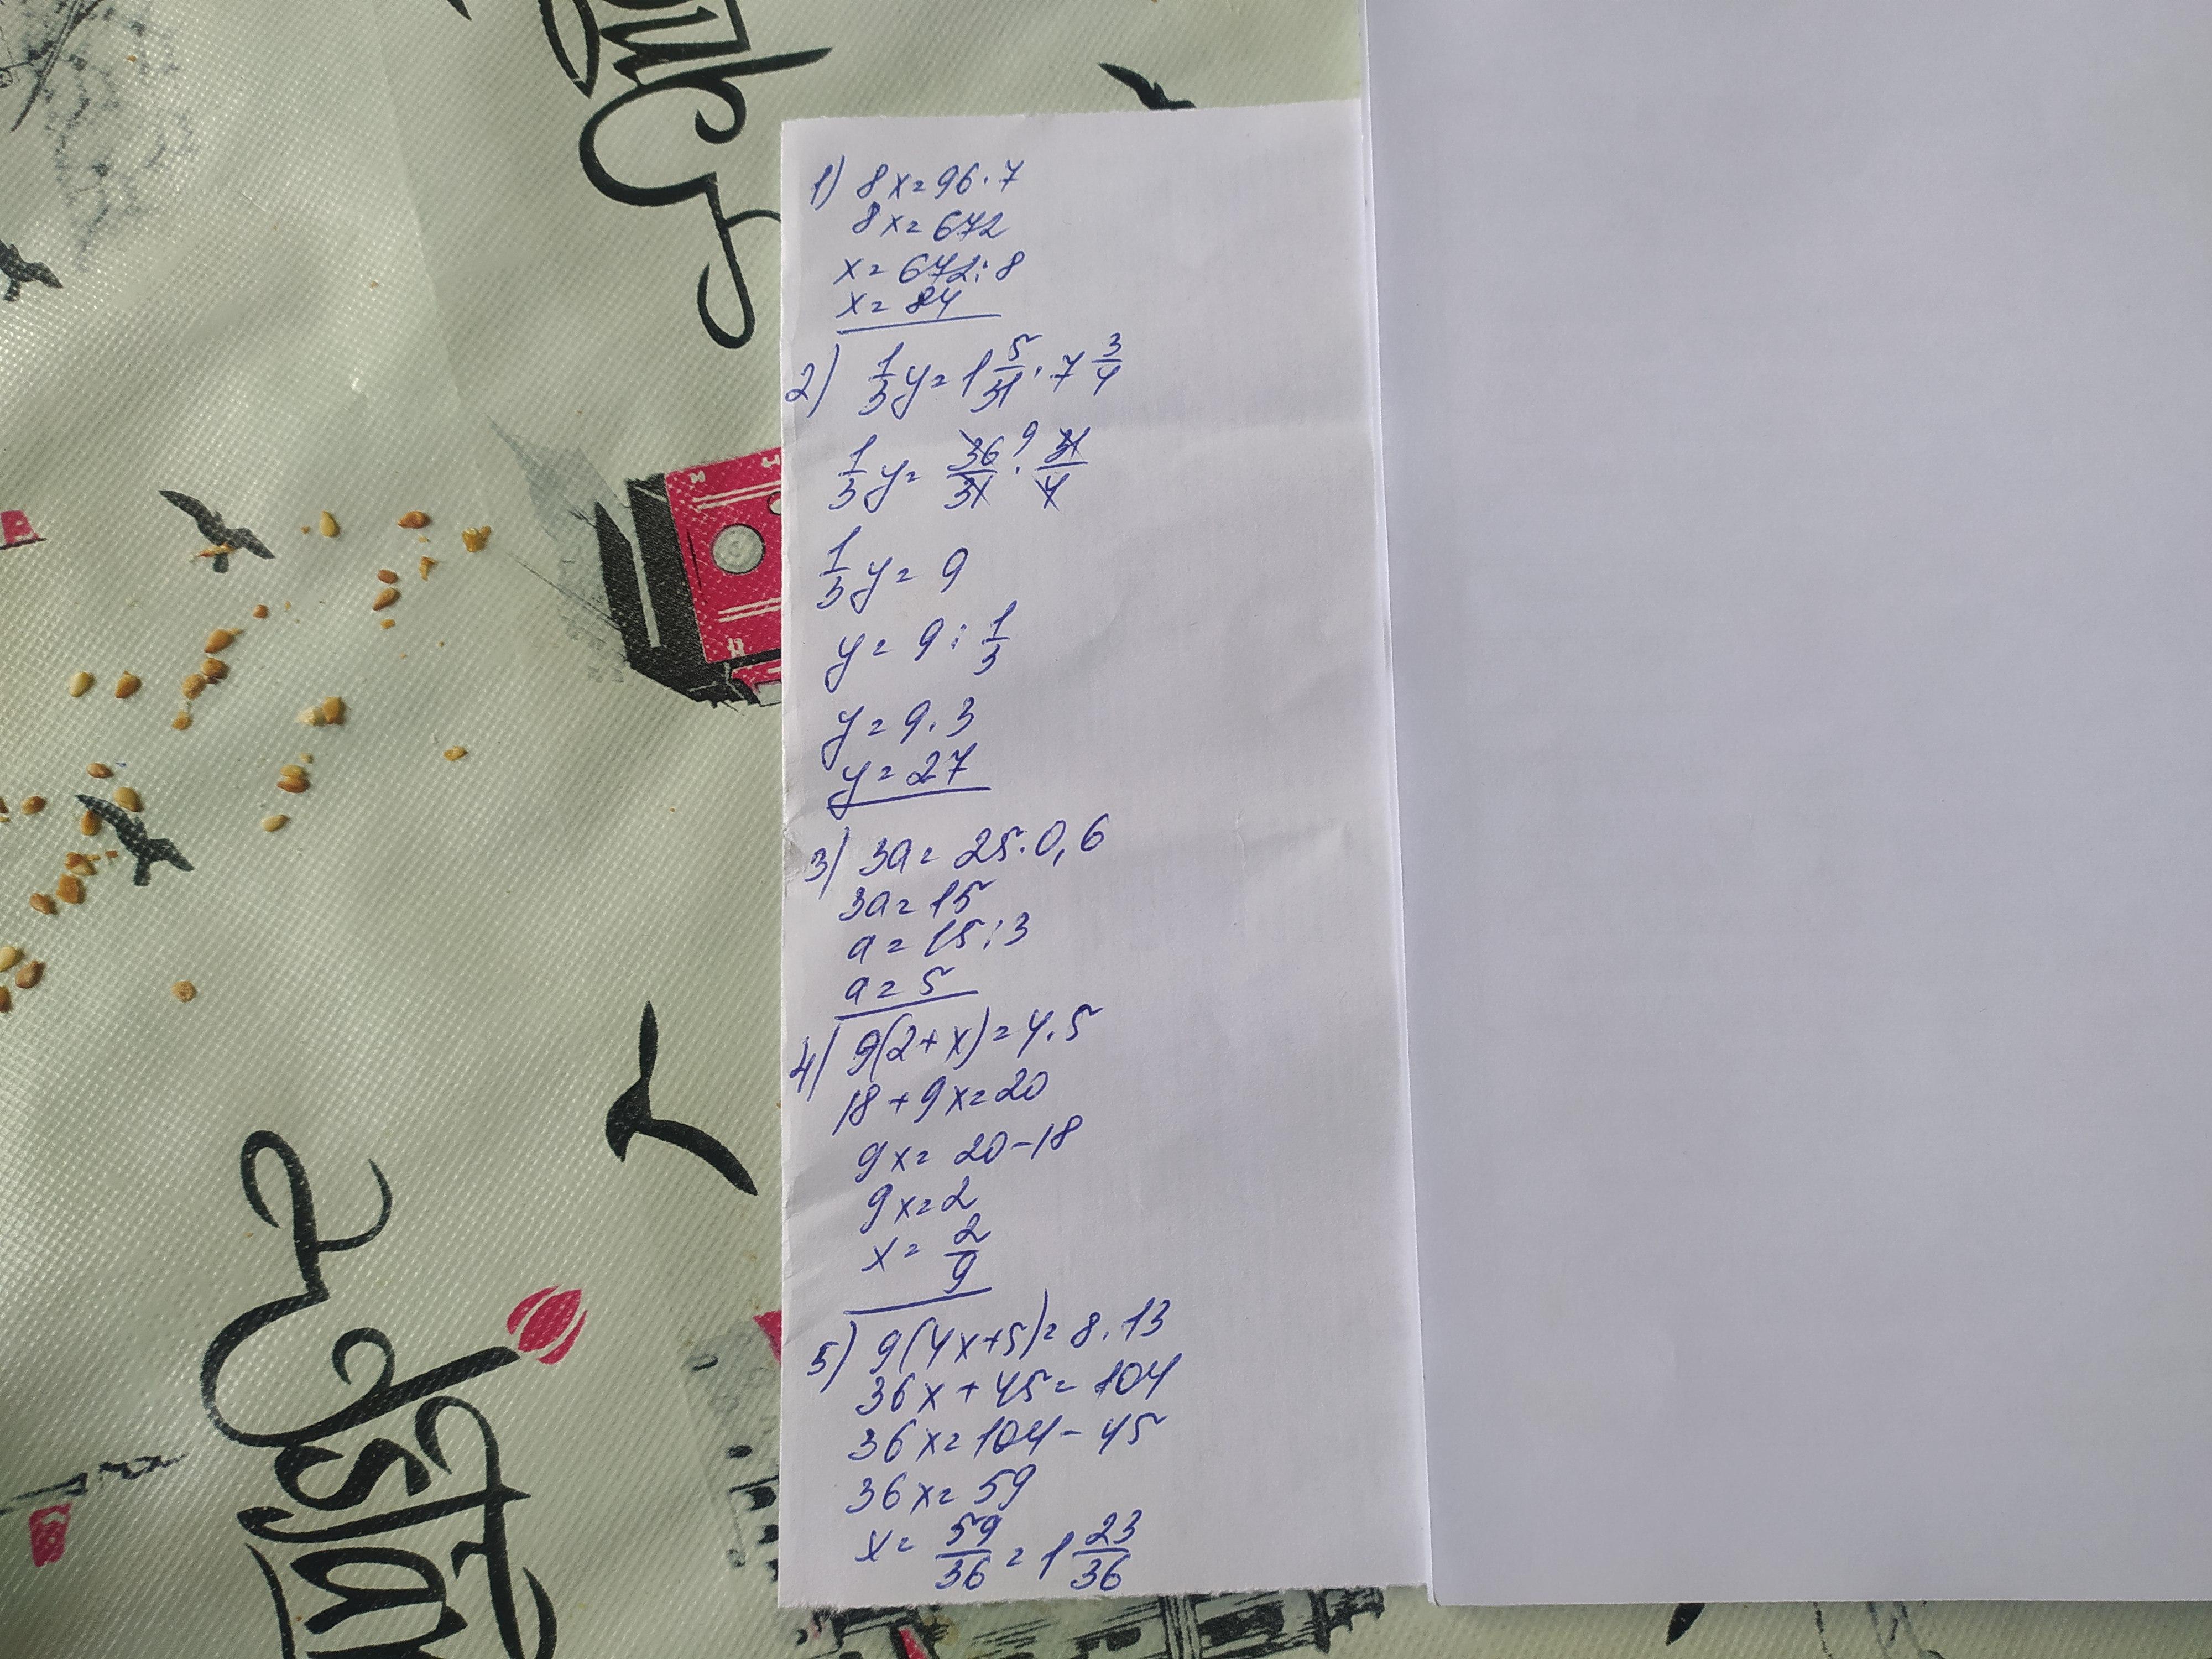 1) 8x=96·7
8x=672
x=672:8
x=84
2) 1/3 y = 1 5/31 · 7 3/4
1/3 y = 36/31 · 31/4 9
1/3 y = 9
y = 9 : 1/3
y = 9·3
y = 27
3) 3a = 25·0,6
3a = 15
a = 15:3
a = 5
4) 9(2+x)=4·5
18+9x=20
9x=20-18
9x=2
x= 2/9
5) 9(4x+5)=8·13
36x+45=104
36x=104-45
36x=59
x= 59/36 = 1 23/36